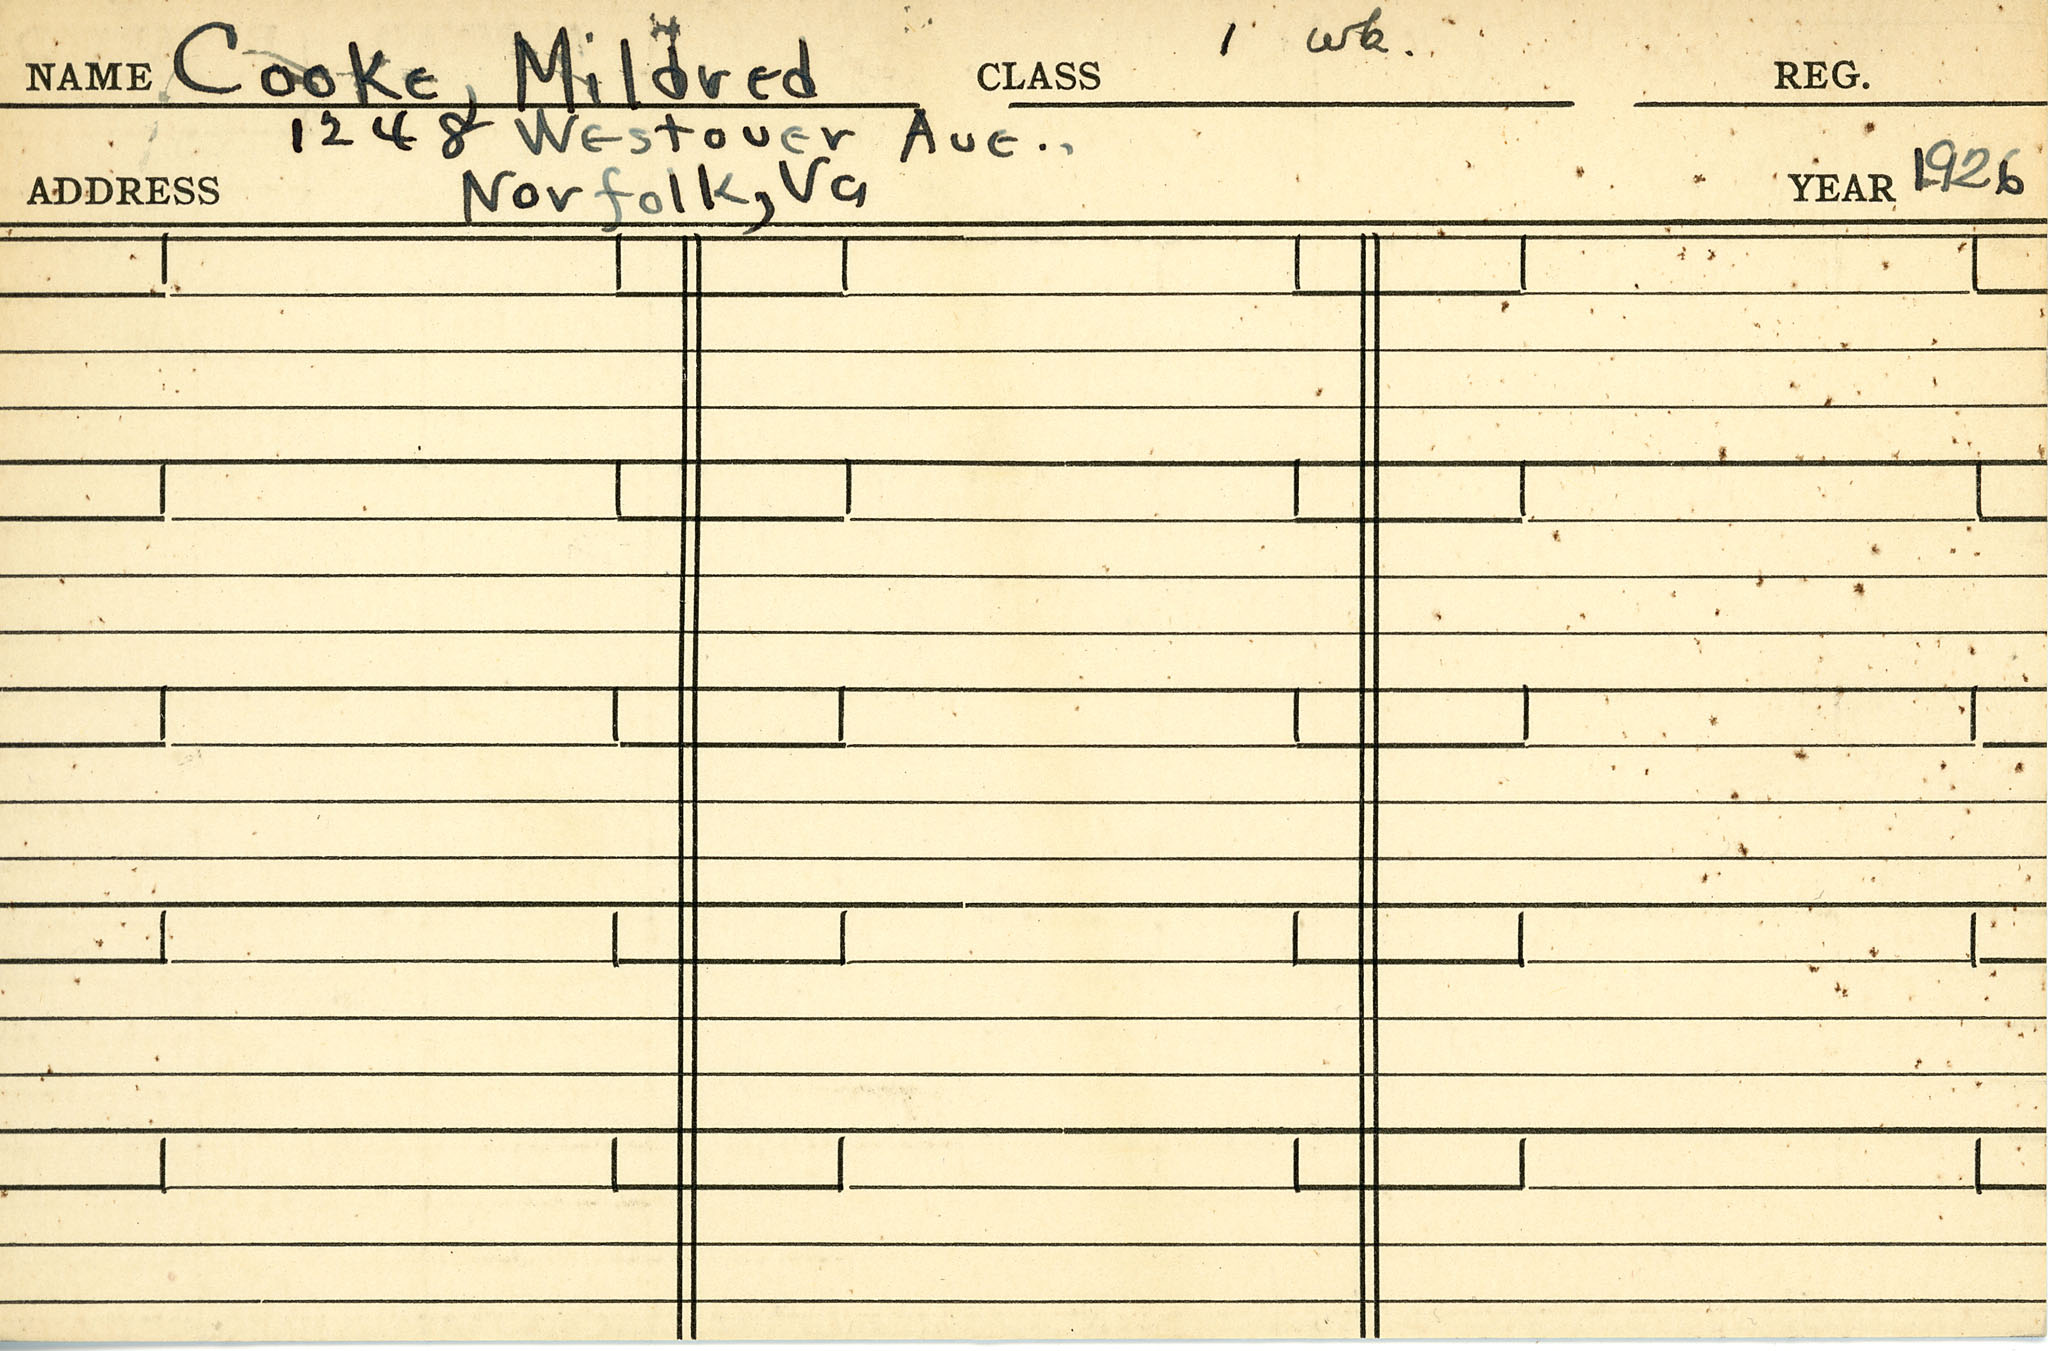 NAME Cooke, Mildred CLASS 1 wk. REG.
1248 Westover Ave.,
ADDRESS Norfolk, Va YEAR 1926